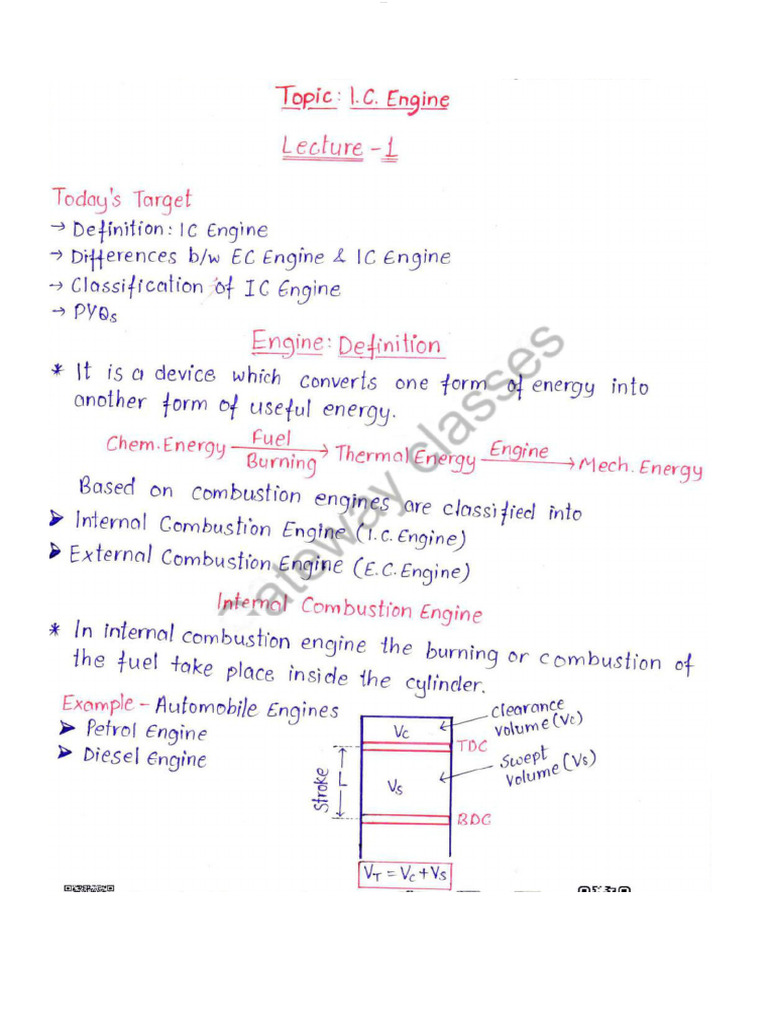 Topic: I.C. Engine
Lecture - 1
Today's Target
→ Definition: IC Engine
→ Differences b/w EC Engine & IC Engine
→ Classification of IC Engine
→ PYQs
Engine: Definition
* It is a device which converts one form of energy into
another form of useful energy.
Chem. Energy Fuel Burning → Thermal Energy Engine → Mech. Energy
Based on combustion engines are classified into
➤ Internal Combustion Engine (I.C. Engine)
➤ External Combustion Engine (E.C. Engine)
Internal Combustion Engine
* In internal combustion engine the burning or combustion of
the fuel take place inside the cylinder.
Example - Automobile Engines
➤ Petrol Engine
➤ Diesel Engine
Clearance
volume (Vc)
Vc
TDC
Swept
volume (Vs)
Stroke
L
Vs
BDC
VT = Vc + Vs
Gateway classes